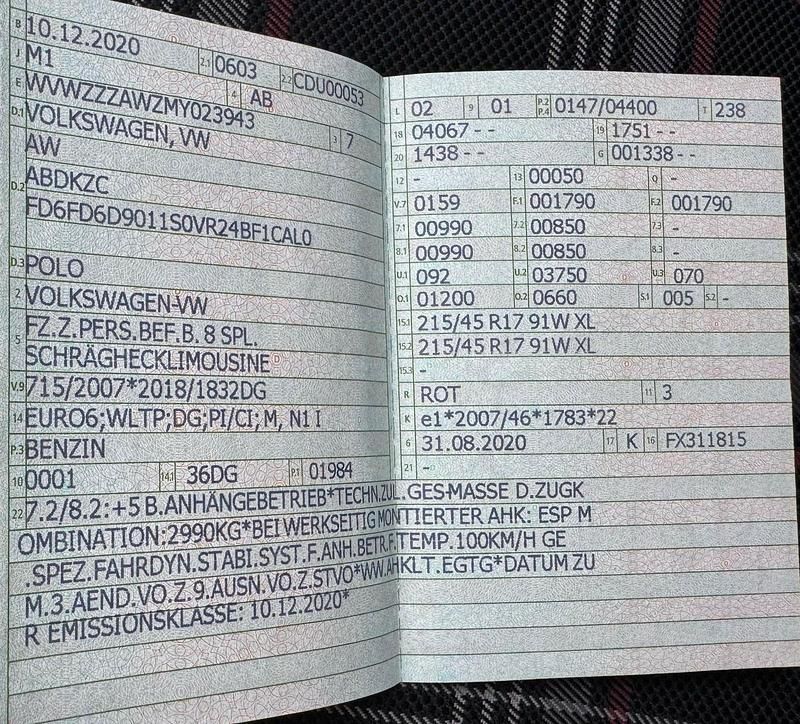 B 10.12.2020
J M1 2.1 0603 2.2 CDU00053
E WVWZZZAWZMY023943 4 AB
D.1 VOLKSWAGEN, VW 3 7
AW
D.2 ABDKZC
FD6FD6D9011S0VR24BF1CAL0
D.3 POLO
2 VOLKSWAGEN-VW
5 FZ.Z.PERS.BEF.B. 8 SPL.
SCHRÄGHECKLIMOUSINE
V.9 715/2007*2018/1832DG
14 EURO6;WLTP;DG;PI/CI; M, N1 I
P.3 BENZIN
10 0001 14.1 36DG P.1 01984
L 02 9 01 P.2 P.4 0147/04400 T 238
18 04067 - - 19 1751 - -
20 1438 - - G 001338 - -
12 - 13 00050 Q -
V.7 0159 F.1 001790 F.2 001790
7.1 00990 7.2 00850 7.3 -
8.1 00990 8.2 00850 8.3 -
U.1 092 U.2 03750 U.3 070
O.1 01200 O.2 0660 S.1 005 S.2 -
15.1 215/45 R17 91W XL
15.2 215/45 R17 91W XL
15.3 -
R ROT 11 3
K e1*2007/46*1783*22
6 31.08.2020 17 K 16 FX311815
21 -
22 7.2/8.2:+5 B.ANHÄNGEBETRIEB*TECHN.ZUL.GES-MASSE D.ZUGK
OMBINATION:2990KG*BEI WERKSEITIG MONTIERTER AHK: ESP M
.SPEZ.FAHRDYN.STABI.SYST.F.ANH.BETR.F.TEMP.100KM/H GE
M.3.AEND.VO.Z.9.AUSN.VO.Z.STVO*WW.AHKLT.EGTG*DATUM ZU
R EMISSIONSKLASSE: 10.12.2020*